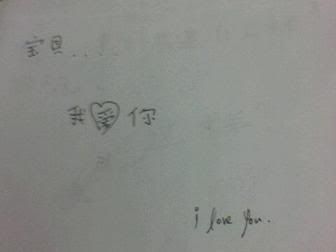 宝贝...
我爱你
i love you.